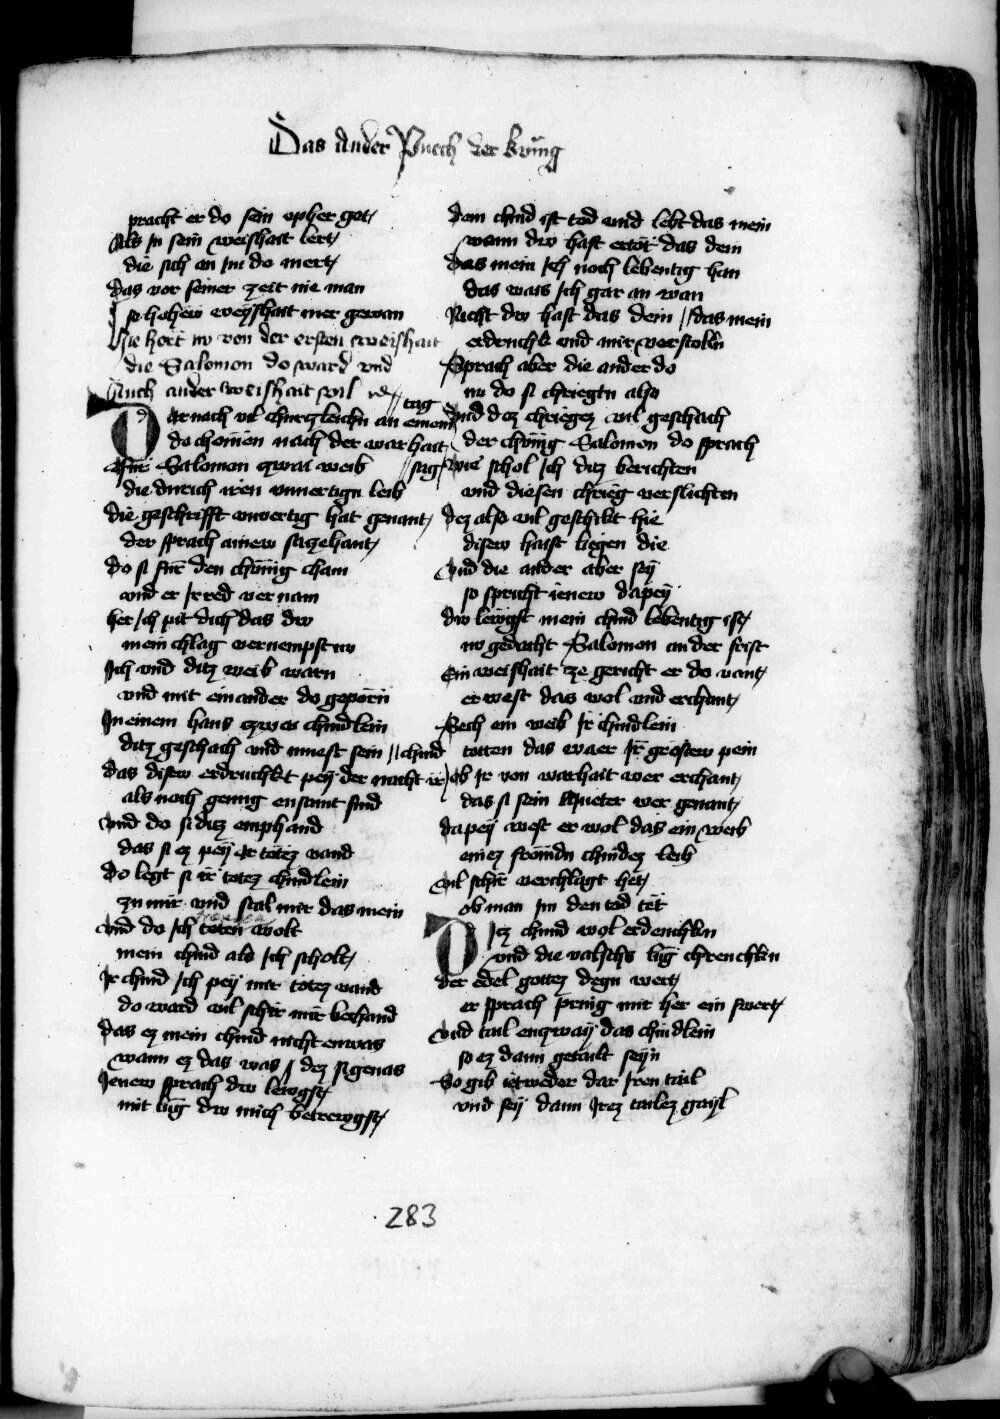 Das Ander Puech der kunig
pracht er do sein opher got
Als in sein weishait lert
die sich an im do mert
das vor seiner zeit nie man
so hohew weyshait mer gewan
Hie hort nw von der ersten weishait
die Salomon do ward vnd
Auch ander weishait vil
Dar nach vil churczleichn an einem // tag
do chomen nach der warhait
fur Salomon zwai weib // sag
die durich iren vnuertign leib
die geschrifft vnuertig hat genant
der sprach ainew saczehant
do si fur den chunig cham
vnd er Ir red vernam
her Ich pit dich das dw
mein chlag vernempst nw
Ich vnd ditz weib warn
vnd mit einander do geporn
In einem haus zwai chindlein
ditz geschach vnd muest sein // chind
das disew erdruchkt pey der nacht ir
als noch genug ensamt sind
vnd do si ditz emphand
das si ez pey ir totez vand
do legt si ir totez chindlein
zu mir vnd stal mir das mein
vnd do Ich toten wolt
mein chind als Ich scholt
Ir chind Ich pey mir totez vand
do ward vil schir mir bechand
das ez mein chind nicht enwas
wann ez das was / dez si genas
Jenew sprach dw lewgst
mit lug dw mich betrewgst
dem chind ist tod vnd lebt das mein
wann dw hast ertot das dein
das mein Ich noch lebentig han
das wais Ich gar an wan
Nicht dw hast das dein // das mein
erdruchk vnd mir verstoln
Sprach aber die ander do
nu do si chriegtn also
vnd dez chriegez vil geschach
der chunig Salomon do sprach
wie schol Ich ditz berichten
vnd diesen chrieg verslichten
dez also vil geschikt hie
disew haist liegen die
vnd die ander aber sey
so spricht ienew dapey
dw lewgst mein chind lebentig ist
nw gedacht Salomon an der frist
Ein weishait ze gericht er do vant
er west das wol vnd erchant
Sech ein weib Ir chindlein
totten das waer Ir grostew pein
ob Ir von warhait wer erchant
das si sein Mueter wer genant
dapey west er wol das ein weib
einez fromdn chindez leib
vil schir verchlagt het
ob man Im den tod tet
Dicz chund wol erdenchkn
vnd die valschs lug chrenchkn
der edel gottez degn wert
er sprach pring mir her ein swert
vnd tail enzway das chindlein
so ez dann getailt seyn
So gib ietweder dar Iren tail
vnd sey dann Irez tailez gayl
283